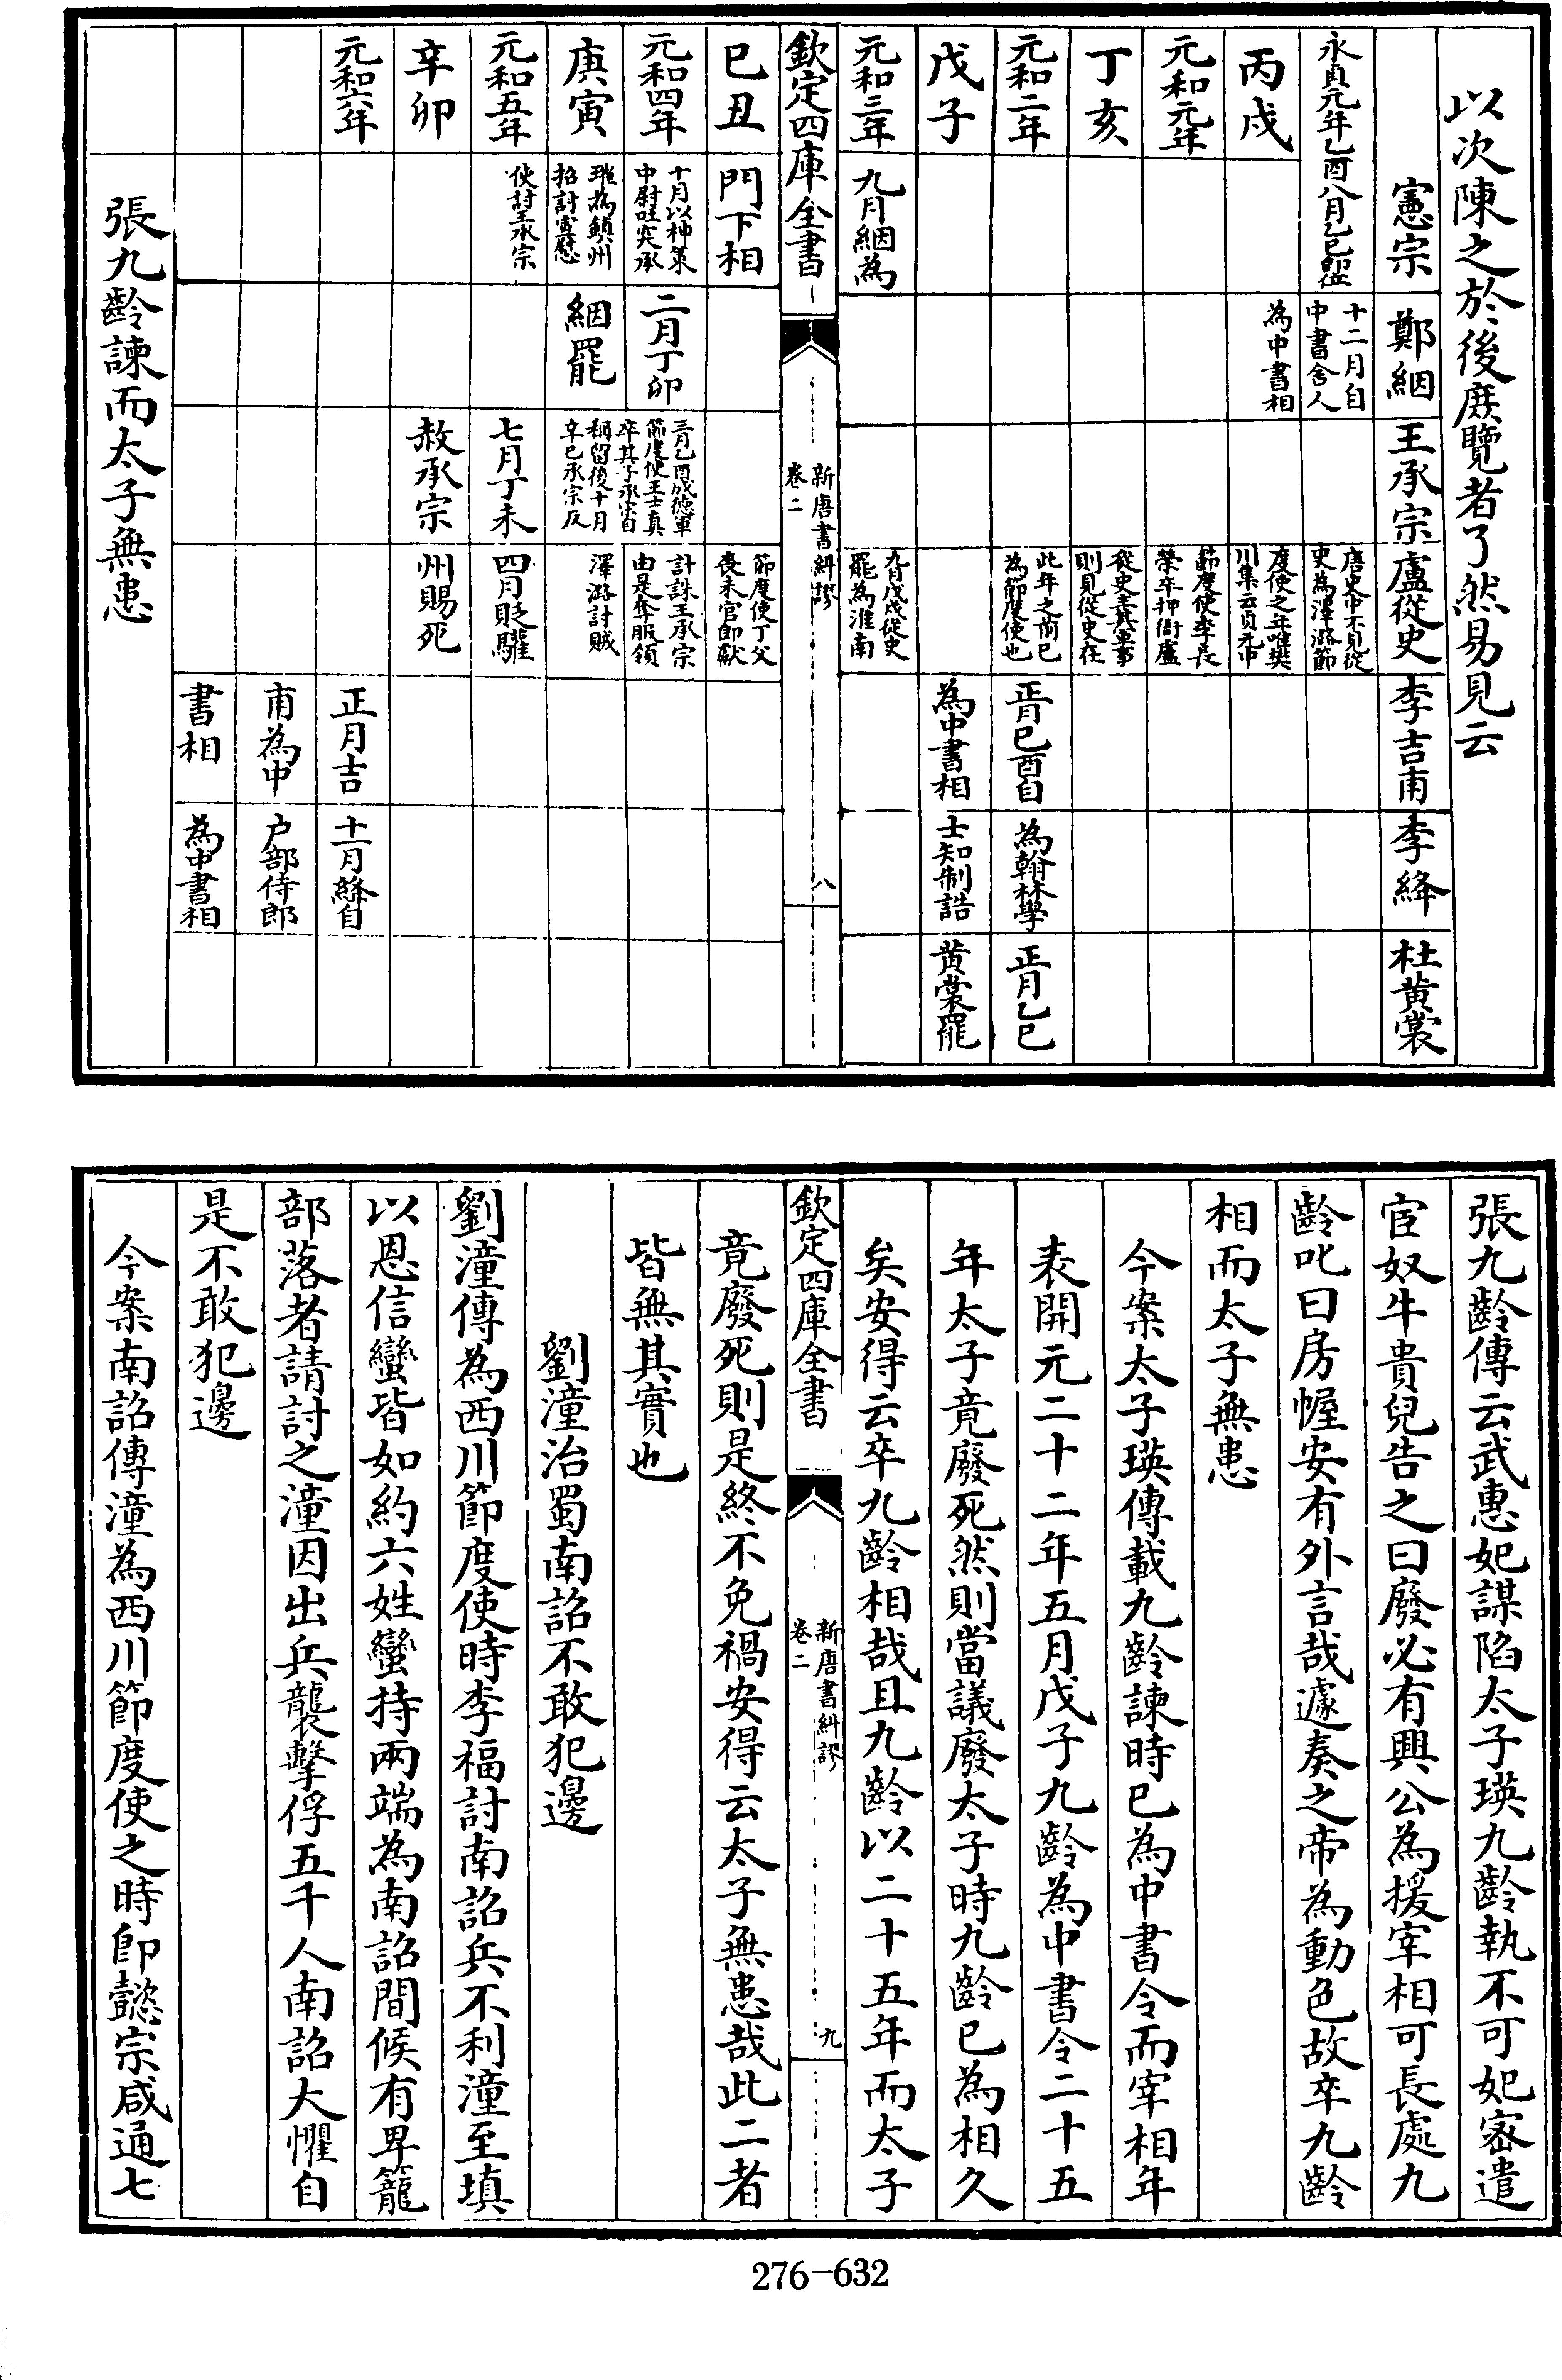 以次陳之於後庶覽者了然易見云
憲宗 鄭絪 王承宗 盧從史 李吉甫 李絳 杜黃裳
永貞元年乙酉八月乙巳即位 十二月自中書舍人 唐史中不見從史為澤潞節
丙戌 為中書相 度使之年唯樊川集云貞元中
元和元年 節度使李長榮卒押衙盧
丁亥 從史主其軍事則見從史在
元和二年 此年之前已為節度使也 正月己酉自 為翰林學 正月乙巳
戊子 為中書相 士知制誥 黃裳罷
元和三年 九月絪為 九月戊戌從史罷為淮南
欽定四庫全書 新唐書糾謬 卷二 八
己丑 門下相 節度使丁父喪未官即獻
元和四年 十月以神策中尉吐突承 二月丁卯 三月乙酉成德軍節度使王士真卒其子承宗自 計誅王承宗由是奪服領
庚寅 璀為鎮州招討宣慰 絪罷 稱留後十月辛巳承宗反 澤潞討賊
元和五年 使討王承宗 七月丁未 四月貶驩
辛卯 赦承宗 州賜死
元和六年 正月吉 十一月絳自
甫為中 戶部侍郎
書相 為中書相
張九齡諫而太子無患
張九齡傳云武惠妃謀陷太子瑛九齡執不可妃密遣
宦奴牛貴兒告之曰廢必有興公為援宰相可長處九
齡叱曰房幄安有外言哉遽奏之帝為動色故卒九齡
相而太子無患
今案太子瑛傳載九齡諫時已為中書令而宰相年
表開元二十二年五月戊子九齡為中書令二十五
年太子竟廢死然則當議廢太子時九齡已為相久
矣安得云卒九齡相哉且九齡以二十五年而太子
欽定四庫全書 新唐書糾謬 卷二 九
竟廢死則是終不免禍安得云太子無患哉此二者
皆無其實也
劉潼治蜀南詔不敢犯邊
劉潼傳為西川節度使時李福討南詔兵不利潼至填
以恩信蠻皆如約六姓蠻持兩端為南詔間候有卑籠
部落者請討之潼因出兵襲擊俘五千人南詔大懼自
是不敢犯邊
今案南詔傳潼為西川節度使之時即懿宗咸通七
276-632